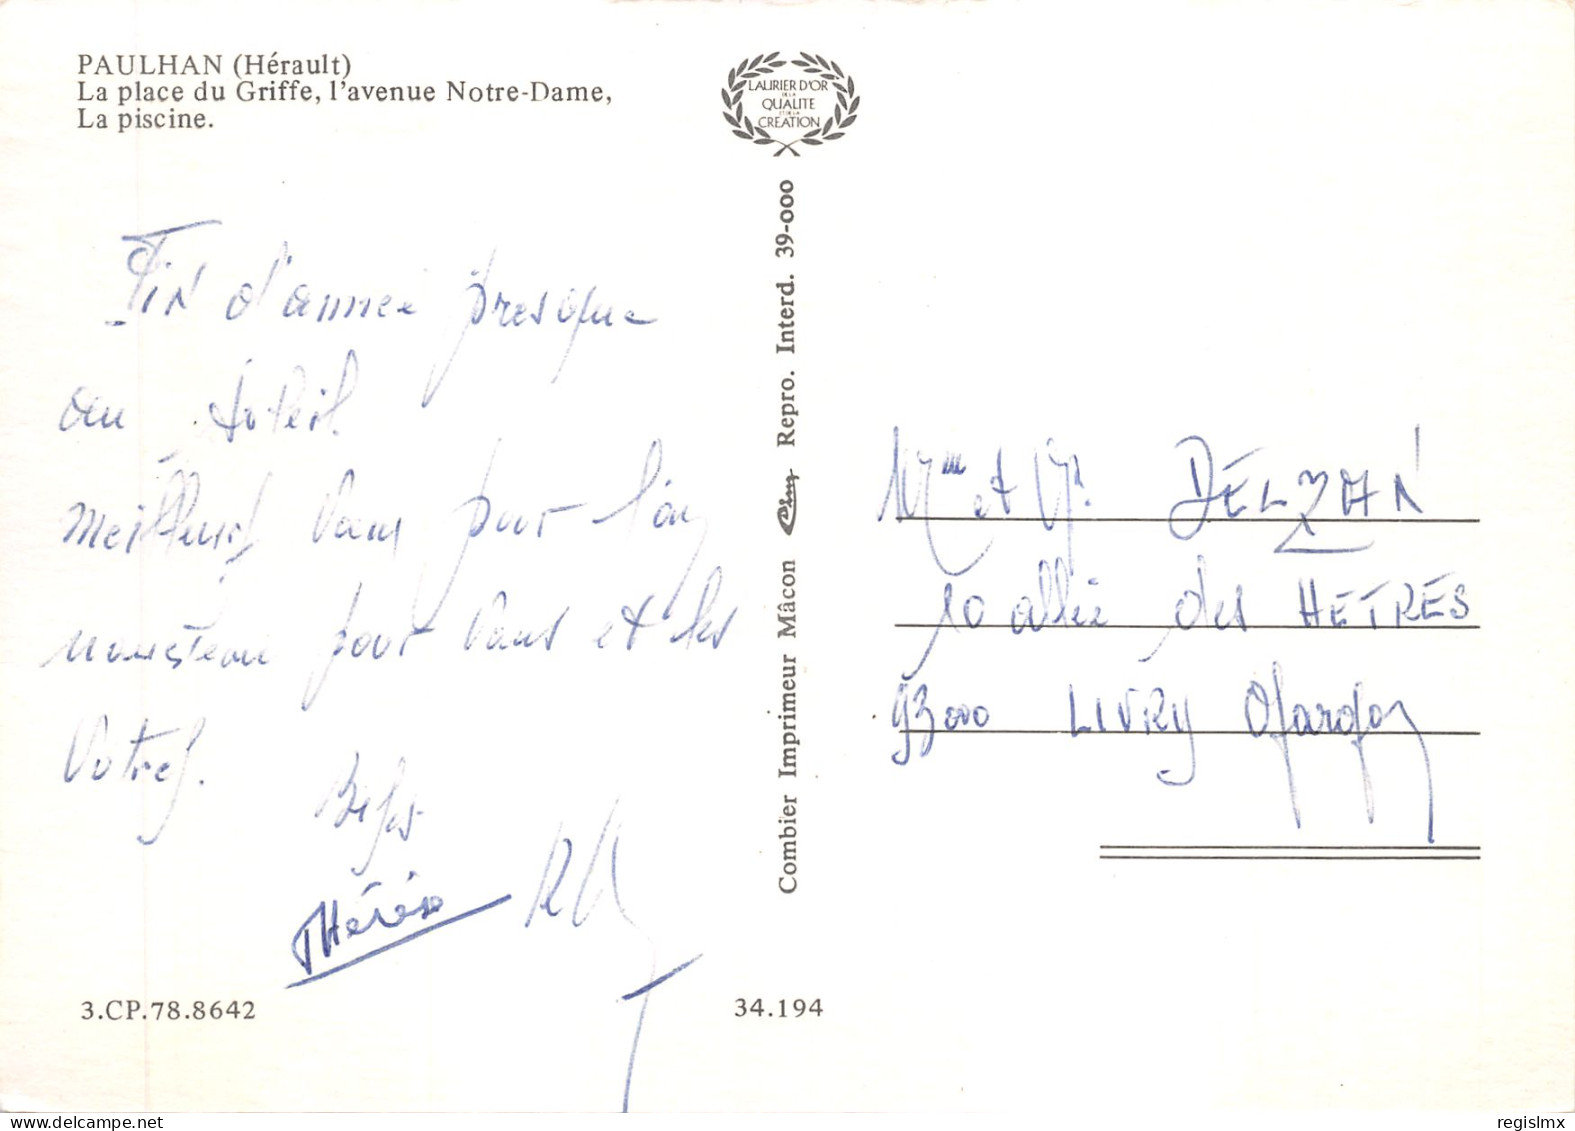 PAULHAN (Hérault)
La place du Griffe, l'avenue Notre-Dame,
La piscine.
LAURIER D'OR
DE LA
QUALITE
ET DE LA
CREATION
Fin d'année presque
au soleil.
meilleurs vœux pour l'an
nouveau pour vous et les
Votres.
Bises
Thérèse
3.CP.78.8642
34.194
Combier Imprimeur Mâcon Cim Repro. Interd. 39-000
Mme et Mr. DELZAN
10 allée des HETRES
93000 LIVRY Gargan
regislmx